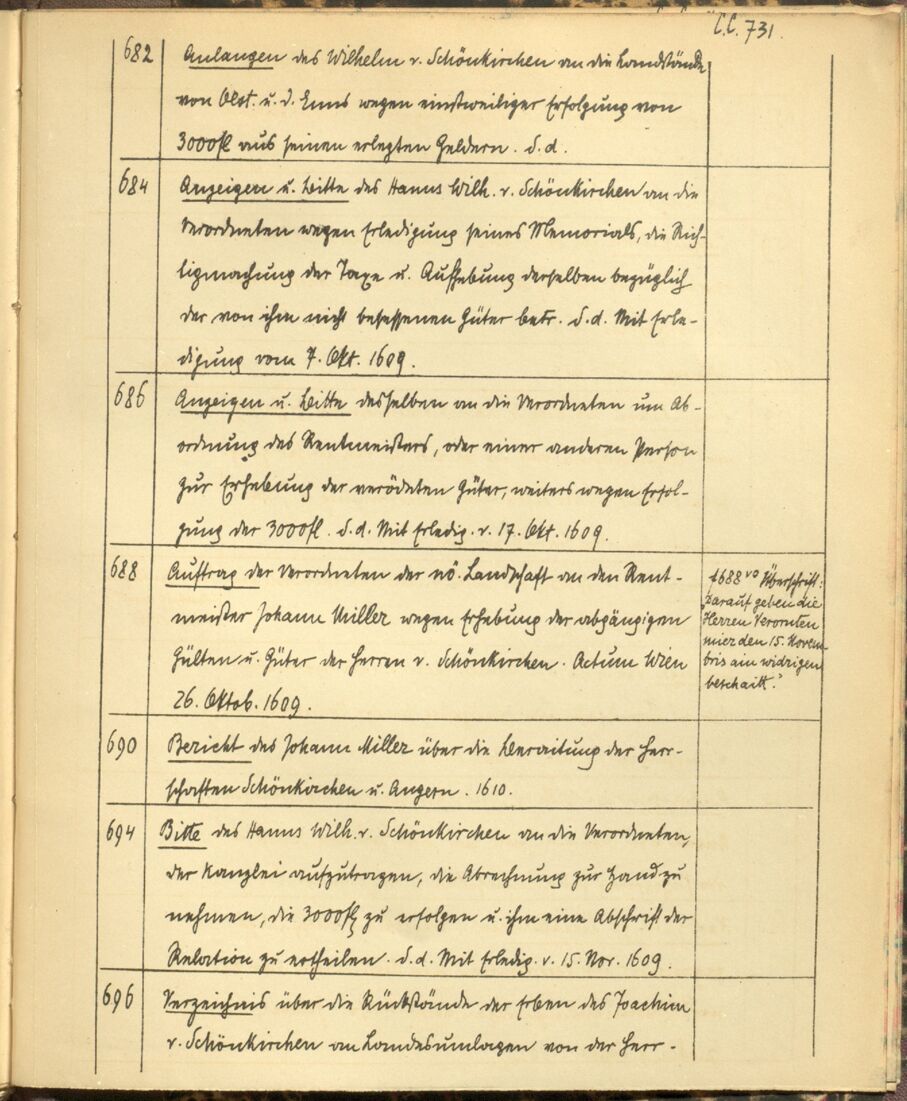 C.C. 731.
682 Anlangen des Wilhelm v. Schönkirchen an die Landstände
von Öst. u. d. Enns wegen einstweiliger Erfolgung von
3000fl aus seinen erlegten Geldern. s. d.
684 Anzeigen u. Bitte des Hanns Wilh. v. Schönkirchen an die
Verordneten wegen Erledigung seines Memorials, die Rich-
tigmachung der Taxe u. Aufhebung derselben bezüglich
der von ihm nicht besessenen Güter betr. s. d. Mit Erle-
digung vom 7. Okt. 1609.
686 Anzeigen u. Bitte desselben an die Verordneten um Ab-
ordnung des Rentmeisters, oder einer anderen Person
zur Erhebung der verödeten Güter, weiters wegen Erfol-
gung der 3000fl. s. d. Mit Erledig. v. 17. Okt. 1609.
688 Auftrag der Verordneten der nö. Landschaft an den Rent-
meister Johann Miller wegen Erhebung der abgängigen
Gülten u. Güter der Herren v. Schönkirchen. Actum Wien
26. Oktob. 1609.
f 688 vo Überschrift:
"Darauf geben die
Herren Verornten
mier den 15. Novem
bris ain widrigen
beschaitt."
690 Bericht des Johann Miller über die Bereitung der Herr-
schaften Schönkirchen u. Angern. 1610.
694 Bitte des Hanns Wilh. v. Schönkirchen an die Verordneten,
der Kanzlei aufzutragen, die Abrechnung zur Hand zu
nehmen, die 3000fl zu erfolgen u. ihm eine Abschrift der
Relation zu ertheilen. s. d. Mit Erledig. v. 15. Nov. 1609.
696 Verzeichnis über die Rückstände der Erben des Joachim
v. Schönkirchen an Landesumlagen von der Herr-